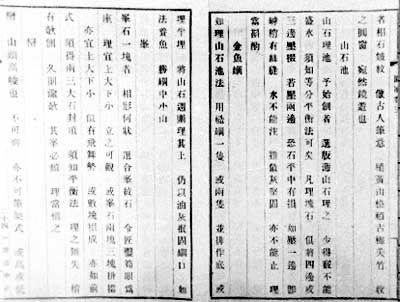 者相石皴紋 倣古人筆意 植黃山松柏古梅美竹 收
之圓窗 宛然鏡遊也
山石池
山石理池 予始創者 選版薄山石理之 少得竅不能
盛水 須知等分平衡法可矣 凡理塊石 俱將四邊或
三邊壓掇 若壓兩邊 恐石平中有損 如壓一邊 即
罅稍有絲縫 水不能注 雖做灰堅固 亦不能止 理
當斟酌
金魚缸
如理山石池法 用糙缸一隻 或兩隻 並排作底 或
埋半埋 將山石週圍理其上 仍以油灰抿固缸口 如
法養魚 勝缸中小山
峯
峯石一塊者 相形何狀 選合峯紋石 令匠鑿筍眼爲
座 理宜上大下小 立之可觀 或峯石兩塊三塊拼掇
亦宜上大下小 似有飛舞勢 或數塊掇成 亦如前
式 須得兩三大石封頂 須知平衡法 理之無失 稍
有欹側 久則逾欹 其峯必頹 理當慎之
巒
巒 山頭高峻也 不可齊 亦不可筆架式 或高或低